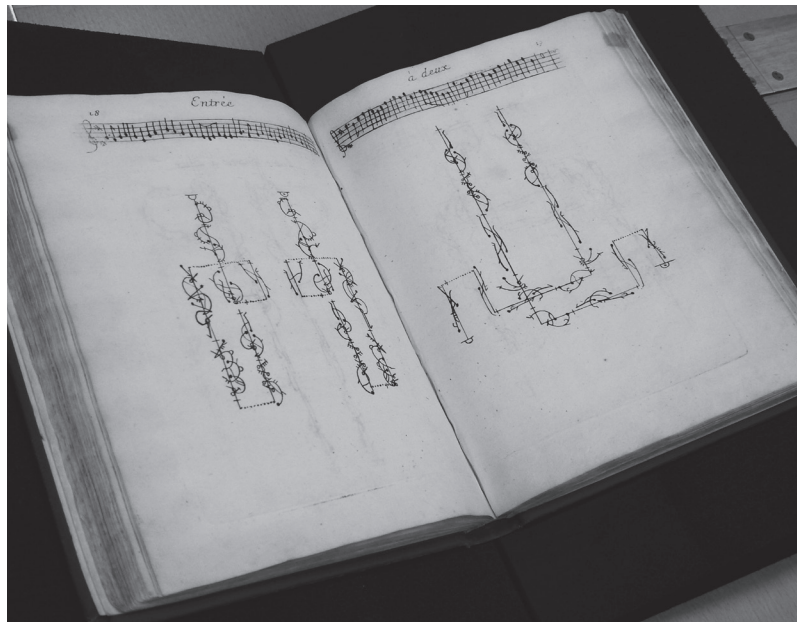 18
Entrée
à deux